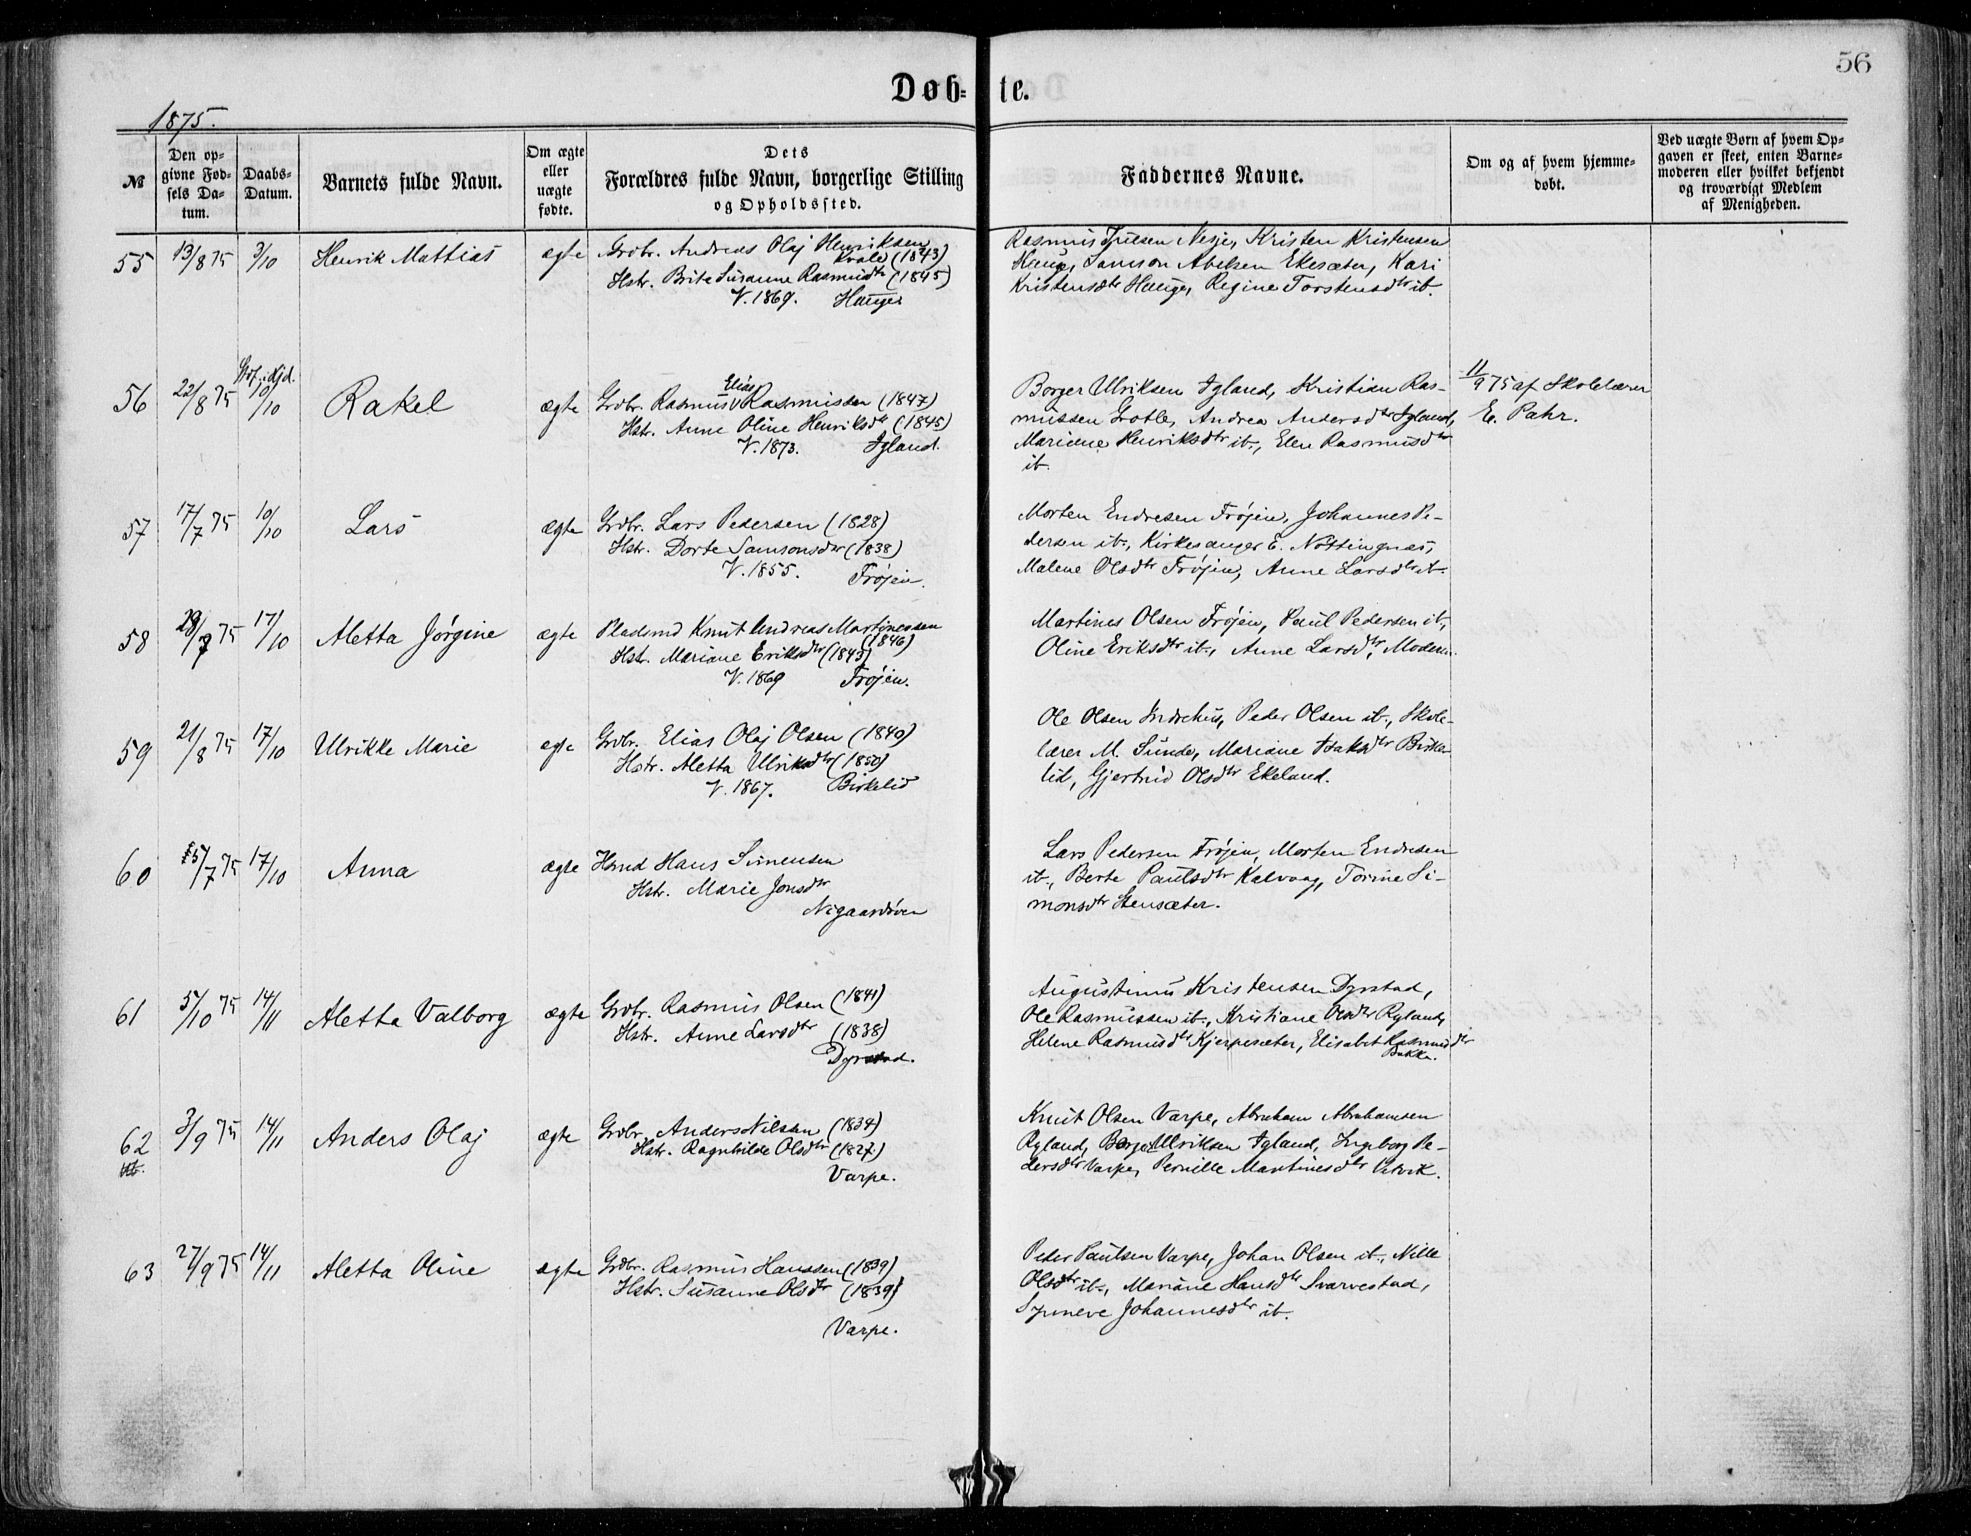 56
Døb= te.
1875.
№
Den op-
givne Fød-
sels Da-
tum.
Daabs-
Datum.
Barnets fulde Navn.
Om ægte
eller
uægte
fødte.
Dets
Forældres fulde Navn, borgerlige Stilling
og Opholdssted.
Faddernes Navne.
Om og af hvem hjemme-
døbt.
Ved uægte Børn af hvem Op-
gaven er skeet, enten Barne-
moderen eller hvilket bekjendt
og troværdigt Medlem
af Menigheden.
55 13/8 75 3/10 Henrik Mattias ægte Grdbr. Andreas Olaj Henriksen
Kvale (1843)
Hstr. Brite Susanne Rasmusdtr (1845)
V. 1869. Hauge.
Rasmus Nesje, Kristen Kristensen
Hauge, Samson Abelsen Ekesæter, Kari
Kristensdtr Hauge, Regine Torstensdtr ib.
56 22/8 75 10/10 Rakel ægte Grdbr. Rasmus Elias Rasmussen (1847)
Hstr. Anne Oline Henriksdtr (1845)
V. 1873. Igland.
Borger Ulriksen Igland, Kristian Ras-
mussen Grotle, Andrea Andersdtr Igland,
Mariane Henriksdtr ib., Elen Rasmusdtr
ib.
11/9 75 af Skolelærer
E. Pahr.
57 17/7 75 10/10 Lars ægte Grdbr. Lars Pedersen (1828)
Hstr. Dorte Samsonsdtr (1838)
V. 1855. Frøjen.
Morten Endresen Frøjen, Johannes Pe-
dersen ib., Kirkesanger E. Nøttingnæs,
Malene Olsdtr Frøjen, Anne Larsdtr ib.
58 75 17/10 Aletta Jørgine ægte Pladsmd Knut Andreas Martinessen
(1846)
Hstr. Mariane Eriksdtr (1843)
V. 1869 Frøjen.
Martines Olsen Frøjen, Paul Pedersen ib.,
Oline Eriksdtr ib., Anne Larsdtr, Moderen.
59 21/8 75 17/10 Ulrikke Marie ægte Grdbr. Elias Olaj Olsen (1840)
Hstr. Aletta Ulriksdtr (1850)
V. 1867. Birkelid
Ole Olsen Indrehus, Peder Olsen ib., Skole-
lærer M. Sunde, Mariane Isaksdtr Birke-
lid, Gjertrud Olsdtr Ekeland.
60 15/7 75 17/10 Anna ægte Hsmd Hans Simensen
Hstr. Marie Jonsdtr
Nigaardsøen
Lars Pedersen Frøjen, Morten Endresen
ib., Berte Paulsdtr Kalvaag, Torine Si-
monsdtr Stensæter.
61 5/10 75 14/11 Aletta Valborg ægte Grdbr. Rasmus Olsen (1841)
Hstr. Anne Larsdtr (1838)
Dyrstad.
Augustinus Kristensen Dyrstad,
Ole Rasmussen ib., Kristiane Olsdtr Rylands
Helene Rasmusdtr Kjerpesæter, Elisabet Rasmusdtr
Bakke.
62 3/9 75 14/11 Anders Olaj ægte Grdbr. Anders Nilsen (1834)
Hstr. Ragnhilde Olsdtr (1827)
Varpe.
Knut Olsen Varpe, Abraham Abrahamsen
Ryland, Børge Ulriksen Igland, Ingeborg Pe-
dersdtr Varpe, Pernille Martinesdtr
63 27/9 75 14/11 Aletta Oline ægte Grdbr. Rasmus Hanssen (1839)
Hstr. Susanne Olsdtr (1839)
Varpe.
Peter Paulsen Varpe, Johan Olsen ib., Nille
Olsdtr ib., Mariane Hansdtr Svarvestad,
Synneve Johannesdtr ib.